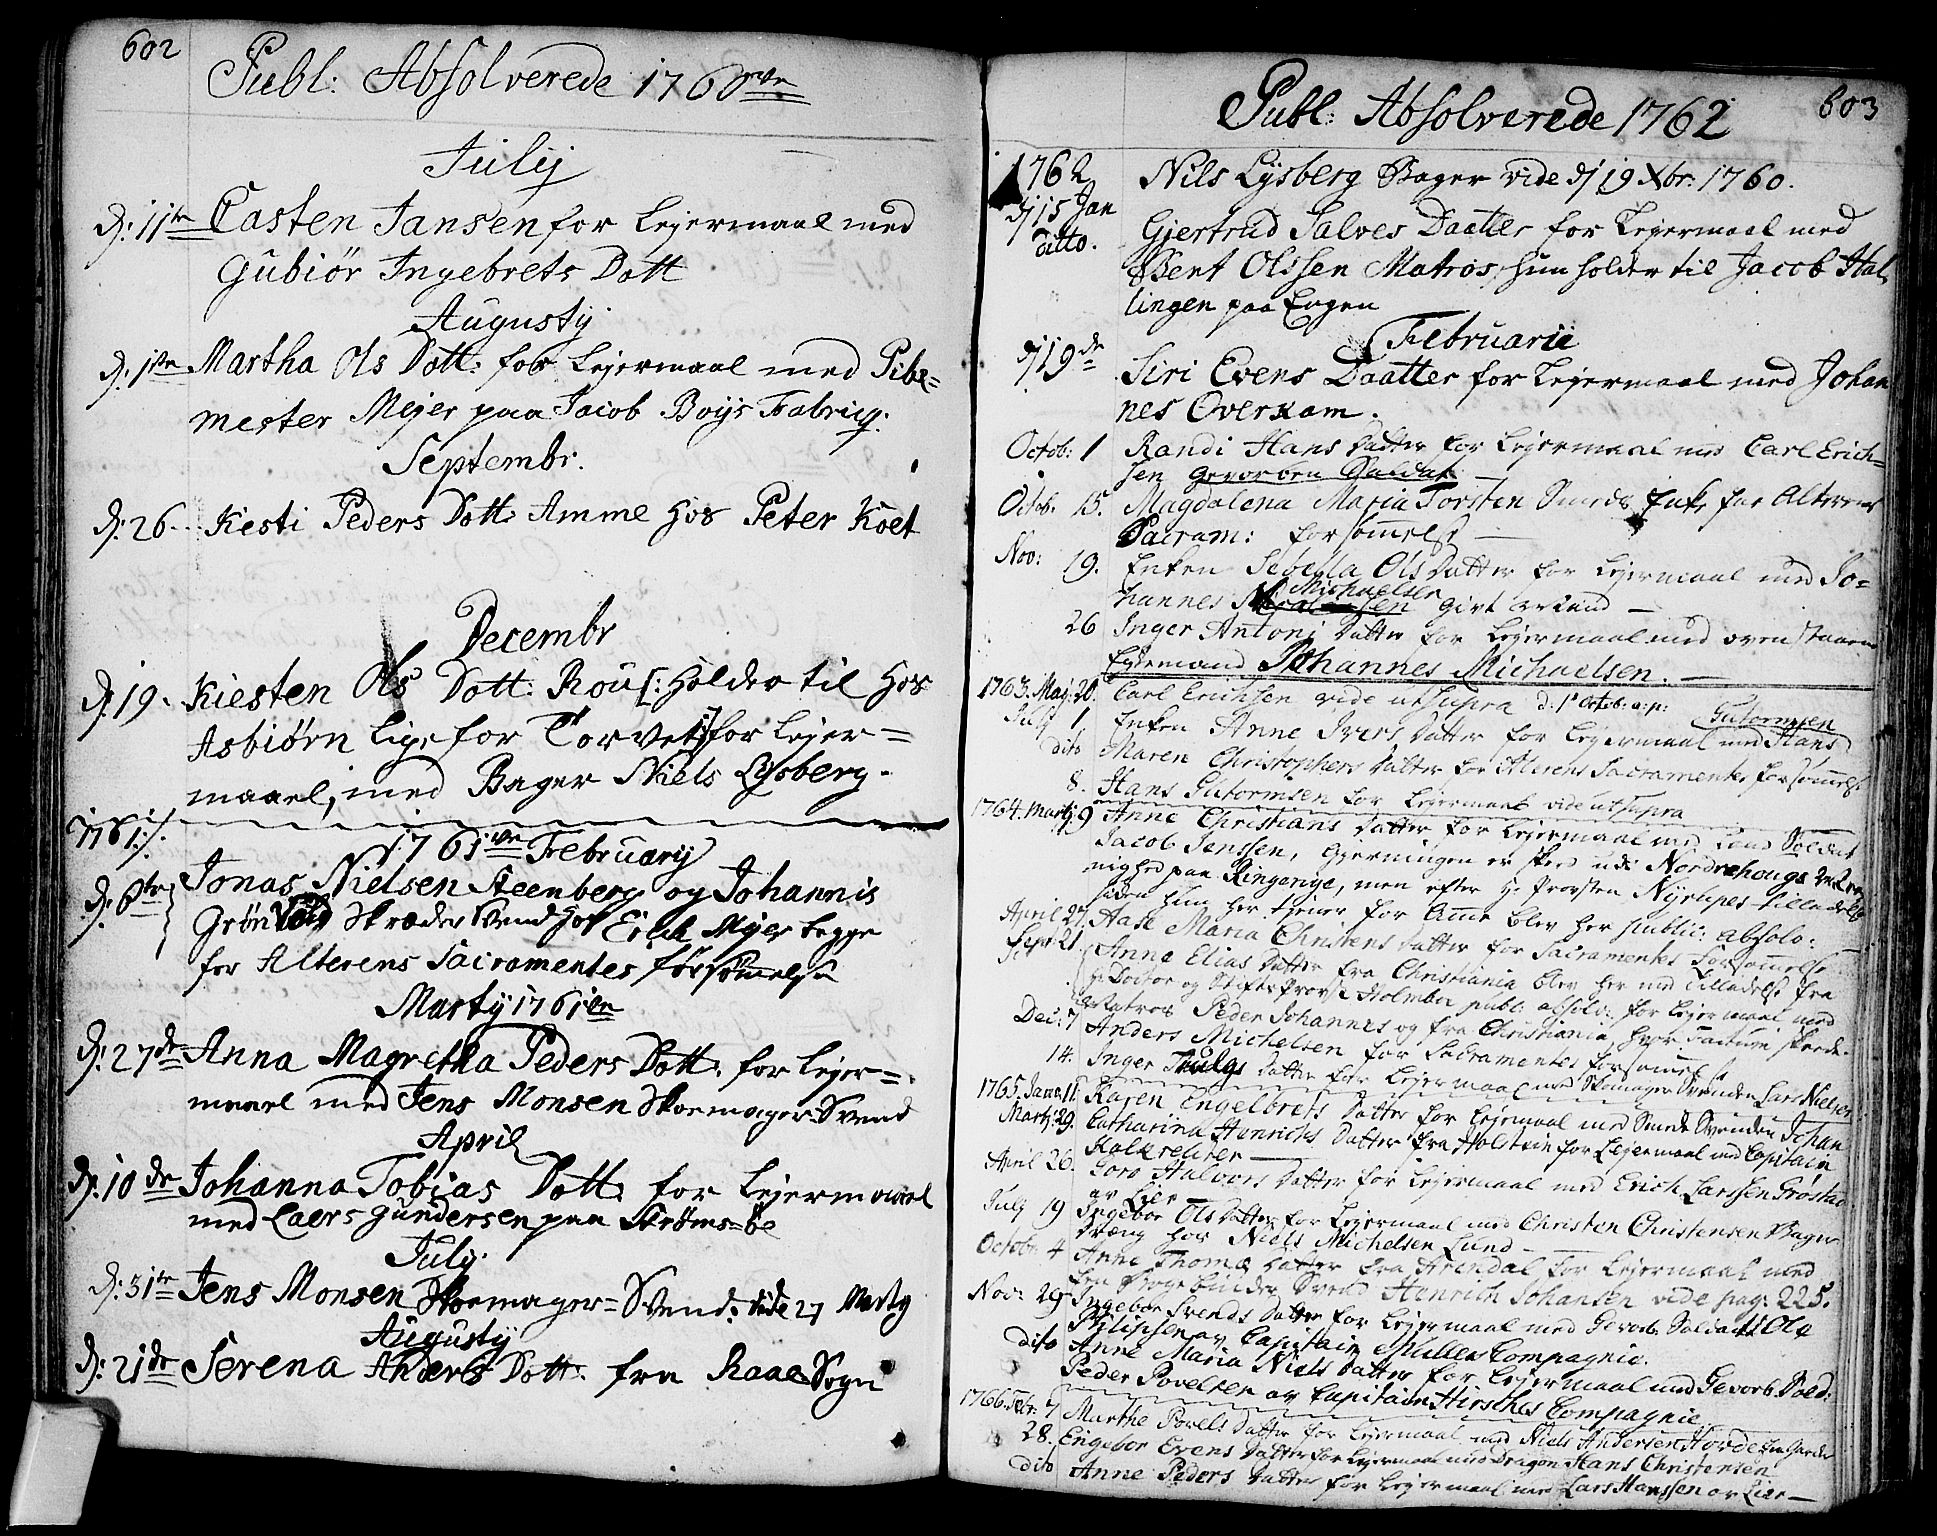 602
Publ: Absolverede 1760ve
July
d: 11te Casten Jansen for Lejermaal med
Gubiør Ingebrets Dott
Augusty
d: 1ste Martha Ols Dott: for Lejermaal med Pibe=
mester Mejer paa Jacob Boys Fabriq.
Septembr.
d: 26. Kiesti Peders Dott: Amme hos Peter Koet
Decembr
d: 19. Kiesten Ols Dott: Rou [: holder til hos
Asbiørn lige for Torvet :] for Lejer=
maael, med Bager Niels Lysberg.
1761 :/.
1761ve February
d: 6te Jonas Nielsen Steenberg og Johannis
Grøn Skræder Svend hos Erich Mejer begge
for Alterens Sacramentes forsømmelse
Marty 1761
d: 27de Anna Magretha Peders Dott: for Lejer=
maael med Jens Monsen Skoemager Svend
April
d: 10de Johanna Tobias Dott: for Lejermaael
med Laers Gundersen paa Strøms=øe
July.
d: 31te Jens Monsen Skoemager=Svend: vide 27 Marty
Augusty
d: 21de Serena Anders Dott: fra Raae Sogn
603
Publ: Absolverede 1762
1762 Nils Lysberg Bager vide d 19 Xbr: 1760.
d 15 Jan
ditto. Gjertrud Salves Daatter for Lejermaal med
Bent Olssen Matros, hun holder til Jacob Hal
lingen paa Engen
Februarii
d 19de Siri Evens Daatter for Lejermaal med Johan
nes Overkam.
Octob: 1 Randi Hans Datter for Lejermaal med Carl Erich=
sen gevorben Soldat
Octob. 15. Magdalena Maria Torsten Smeds Enke for Alterens
Sacram: forsømmelse —
Nov: 19. Enken Sebella Ols Datter for Lejermaal med Jo=
hannes Michaelsen givt —
26 Inger Antoni Datter for Lejermaal med ovenstaaende
Johannes Michaelsen. —
1763. Maj: 20. Carl Erichsen vide ut supra d: 1 Octob: a: p:
July 1 Enken Anne Ivers Datter for Lejermaal med Hans Gutormsen
dito Maren Christophers Datter for Alterens Sacramentes forsømmelse
8. Hans Gutormsen for Lejermaal vide ut supra
1764. Marty: 9 Anne Christians Datter for Lejermaal med Land Soldat
Jacob Jenssen, Gjerningen er skeed udi Nordrehougs
paa Ringerige, men efter Hr Provsten Nyrups tilladelse
siden hun her tjener for Ame blev her public: absolv:
April 27. Aase Maria Christens Datter for Sacramentes Forsømmelse
Sept: 21. Anne Elias Datter fra Christiania blev her med Tilladelse fra
Hr Doctor og Stiftsprovst Holmboe publ: absolv: for Lejermaal med
Matros Peder Johannes og fra Christiania, hvor Factum skeede.
Dec: 7 Anders Michelsen for Sacramentes forsømmelse
14. Inger Datter for Lejermaal med Skomager Svenden Lars Nielsen
1765. Janu: 11. Karen Engelbrets Datter for Lejermaal med Smede Svenden Johan
Marty: 29. Catharina Henrichs Datter fra Holstein for Lejermaal med Capitain
Kalkreuter —
April 26. Goro Halvors Datter for Lejermaal med Erich Larssen Grøstad
av Lier —
July 19 Ingebor Ols Datter for Lejermaal med Christen Christensen Bager
Dræng hos Niels Michelsen Lund —
Octob: 4 Anne Thomæ Datter fra Arendal for Lejermaal med
Bogbinder Svend Henrich Johansen vide pag: 225.
Nov: 29 Ingebor Svends Datter for Lejermaal med Gevorb. Soldat Ole
Philipsen av Capitain Müllers Compagnie.
dito Anne Maria Niels Datter for Lejermaal med Gevorb. Sold:
Peder Povelsen av Capitain Hirsches Compagnie
1766. Febr: 7 Marthe Povels Datter for Lejermaal med Niels Andersen Horde
28. Engebor Evens Datter for Lejermaal med Dragon Hans Christensen
dito Anne Peders Datter for Lejermaal med Lars Hanssen av Lier —